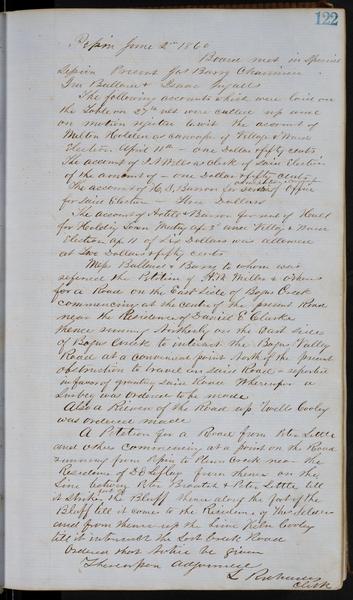 122
Pepin June 2nd 1860
Board met in Special
Session Present Jas Barry Chairman
Ira Bullard & Isaac Ingalls
The following accounts which were laid on
the Table on 27th ult were called up and
on motion rejected to wit the account of
Milton Holden as canvaser of Village & Ward
Election April 11th - one Dollar & fifty cents
The account of J. S. Wells as clerk of said Election
of the amount of - one Dollar & fifty cents
The account of H. S. Barron for Services of Office
for said Election - Three Dollars
The account of Hottel & Barron for rent of House
for Holding Town Meeting Ap 3d and Village &
Election Ap 11 of Six Dollars was allowed
at Two Dollars & fifty cents
Mess Bullard & Barry to whom was
refered the Petition of A. R. Miller & others
for a Road on the East Side of Bogus Creek
commencing at the centre of the present Road
near the Residence of David E. Clarke
thence running Northerly on the East Side
of Bogus Creek to intersect the Bogus Valley
Road at a convenient point North of the present
obstruction to travel in said Road - reported
in favor of granting said Road Whereupon a
Survey was ordered to be made
Also a Review of the Road up Wells Cooley
was ordered made
A Petition for a Road from Peter Little
and others Commencing at a point on the Road
running from Pepin to Plum Creek near the
Residence of D. B. from thence on the
Line between & Peter Little till
it Strikes the Bluff thence along the foot of the
Bluff till it comes to the Residence of Thos
and from thence up the Lime Kiln Cooley
till it intersects the Lost Creek Road
Ordered that Notice be given
Thereupon Adjourned
S. Richards
Clerk